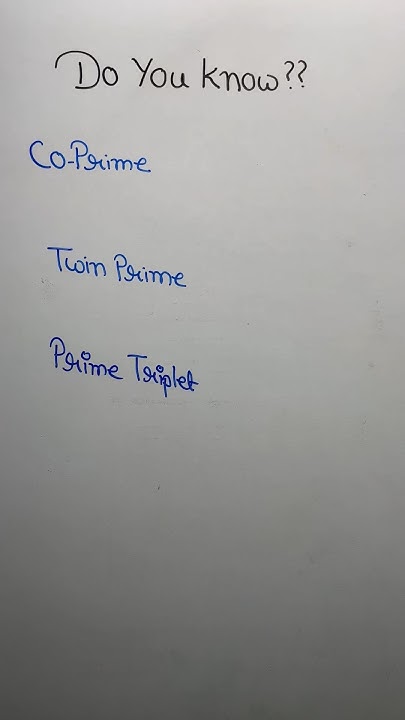 Do You know??
Co-Prime
Twin Prime
Prime Triplet